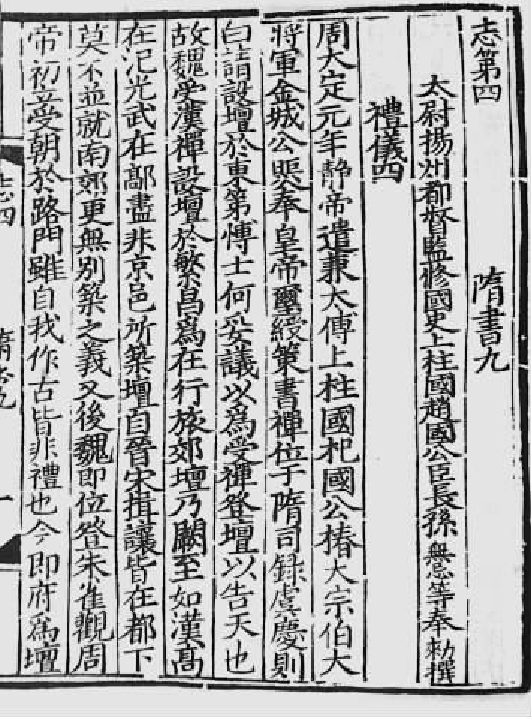 志第四 隋書九
太尉揚州都督監修國史上柱國趙國公臣長孫無忌等奉勅撰
禮儀四
周大定元年静帝遣兼太傅上柱國杞國公椿大宗伯大
將軍金城公煚奉皇帝璽綬策書禪位于隋司録虞慶則
白請設壇於東第博士何妥議以爲受禪登壇以告天也
故魏受漢禪設壇於繁昌爲在行旅郊壇乃闕至如漢高
在汜光武在鄗盡非京邑所築壇自晉宋揖讓皆在都下
莫不並就南郊更無別築之義又後魏即位登朱雀觀周
帝初立受朝於路門雖自我作古皆非禮也今即府爲壇
志四